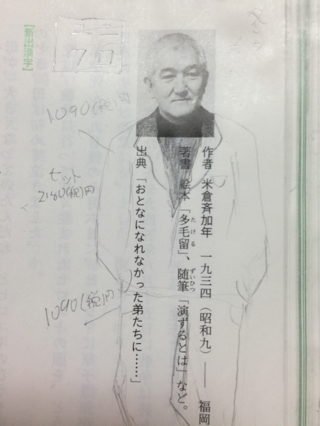 作者　米倉斉加年　一九三四（昭和九）――　福岡
著書　絵本「多毛留」、随筆「演ずるとは」など。
出典「おとなになれなかった弟たちに……」
【新出漢字】
ユニ
クロ
1090(税)円
セット
2180(税)円
1090(税)円